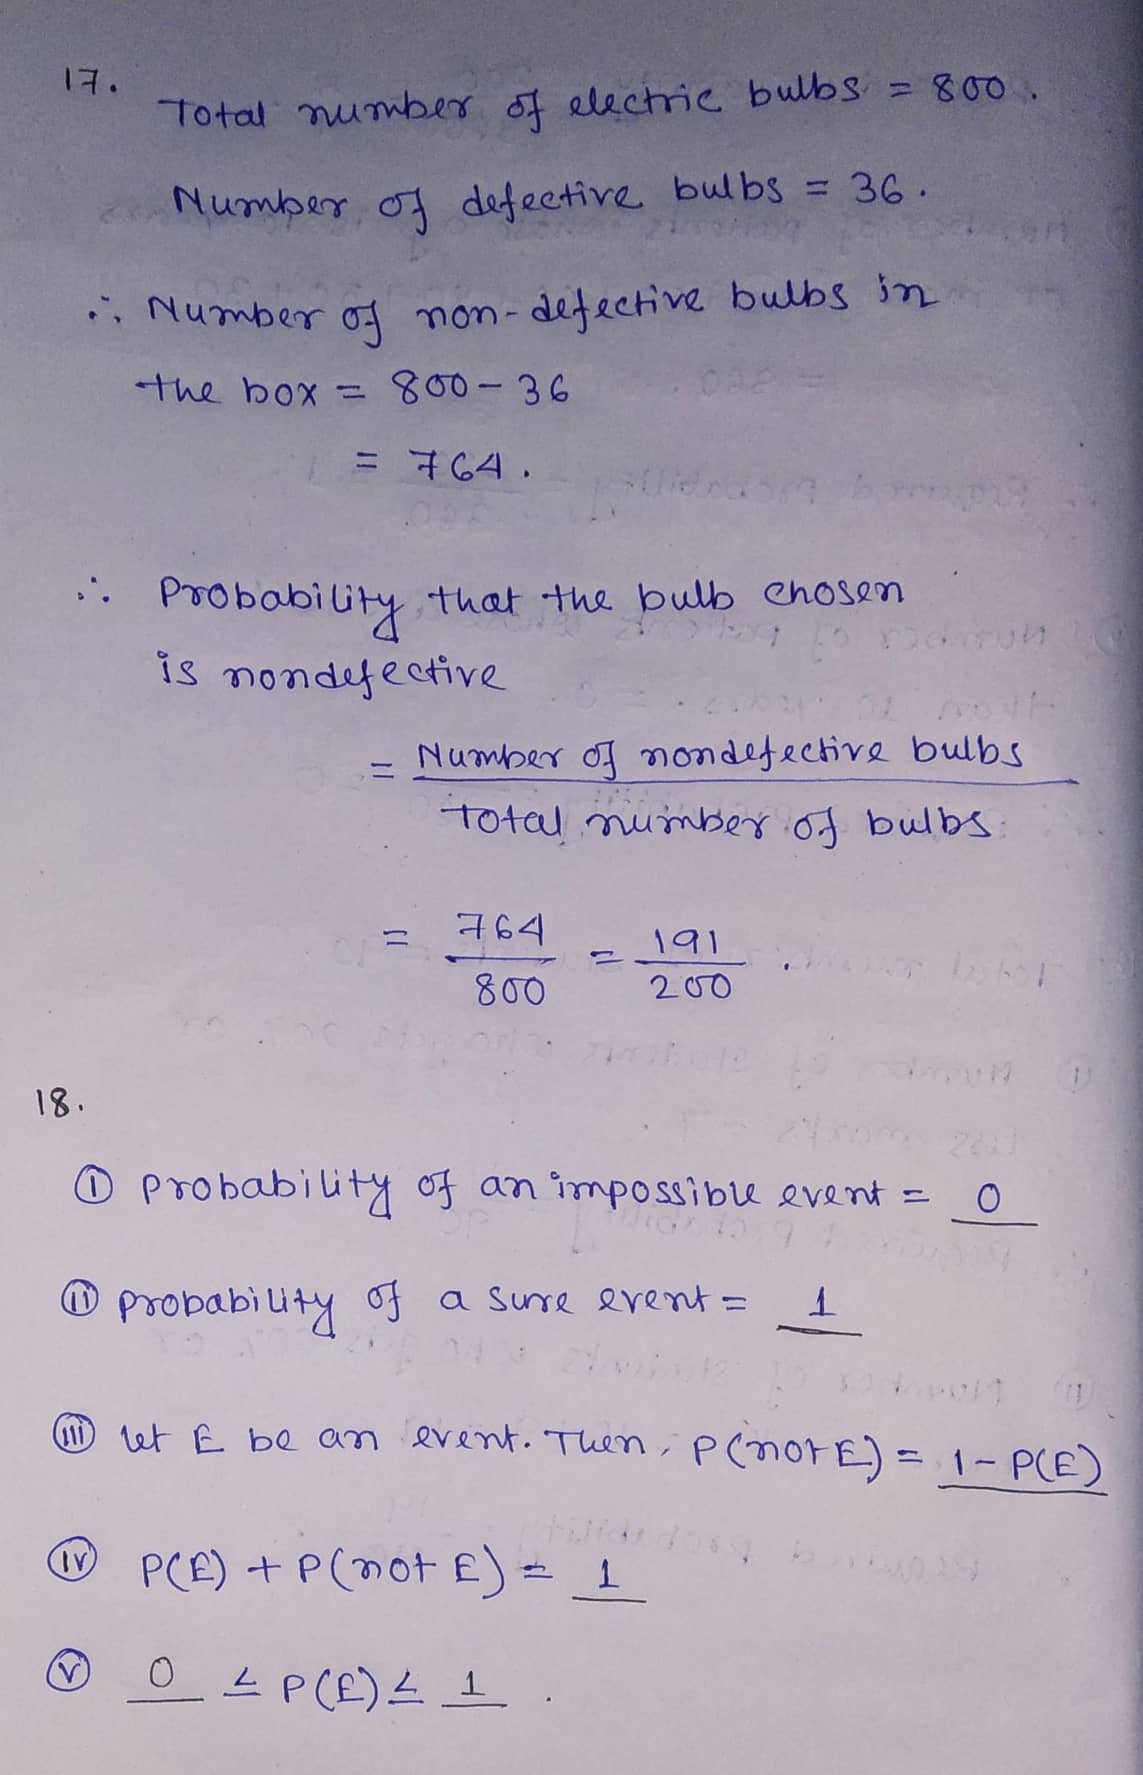 17.
Total number of electric bulbs = 800.
Number of defective bulbs = 36.
∴ Number of non-defective bulbs in
the box = 800 - 36
= 764.
∴ Probability that the bulb chosen
is nondefective
= Number of nondefective bulbs
Total number of bulbs
= 764 / 800 = 191 / 200.
18.
(i) probability of an impossible event = 0
(ii) probability of a sure event = 1
(iii) let E be an event. Then, P(not E) = 1 - P(E)
(iv) P(E) + P(not E) = 1
(v) 0 ≤ P(E) ≤ 1.